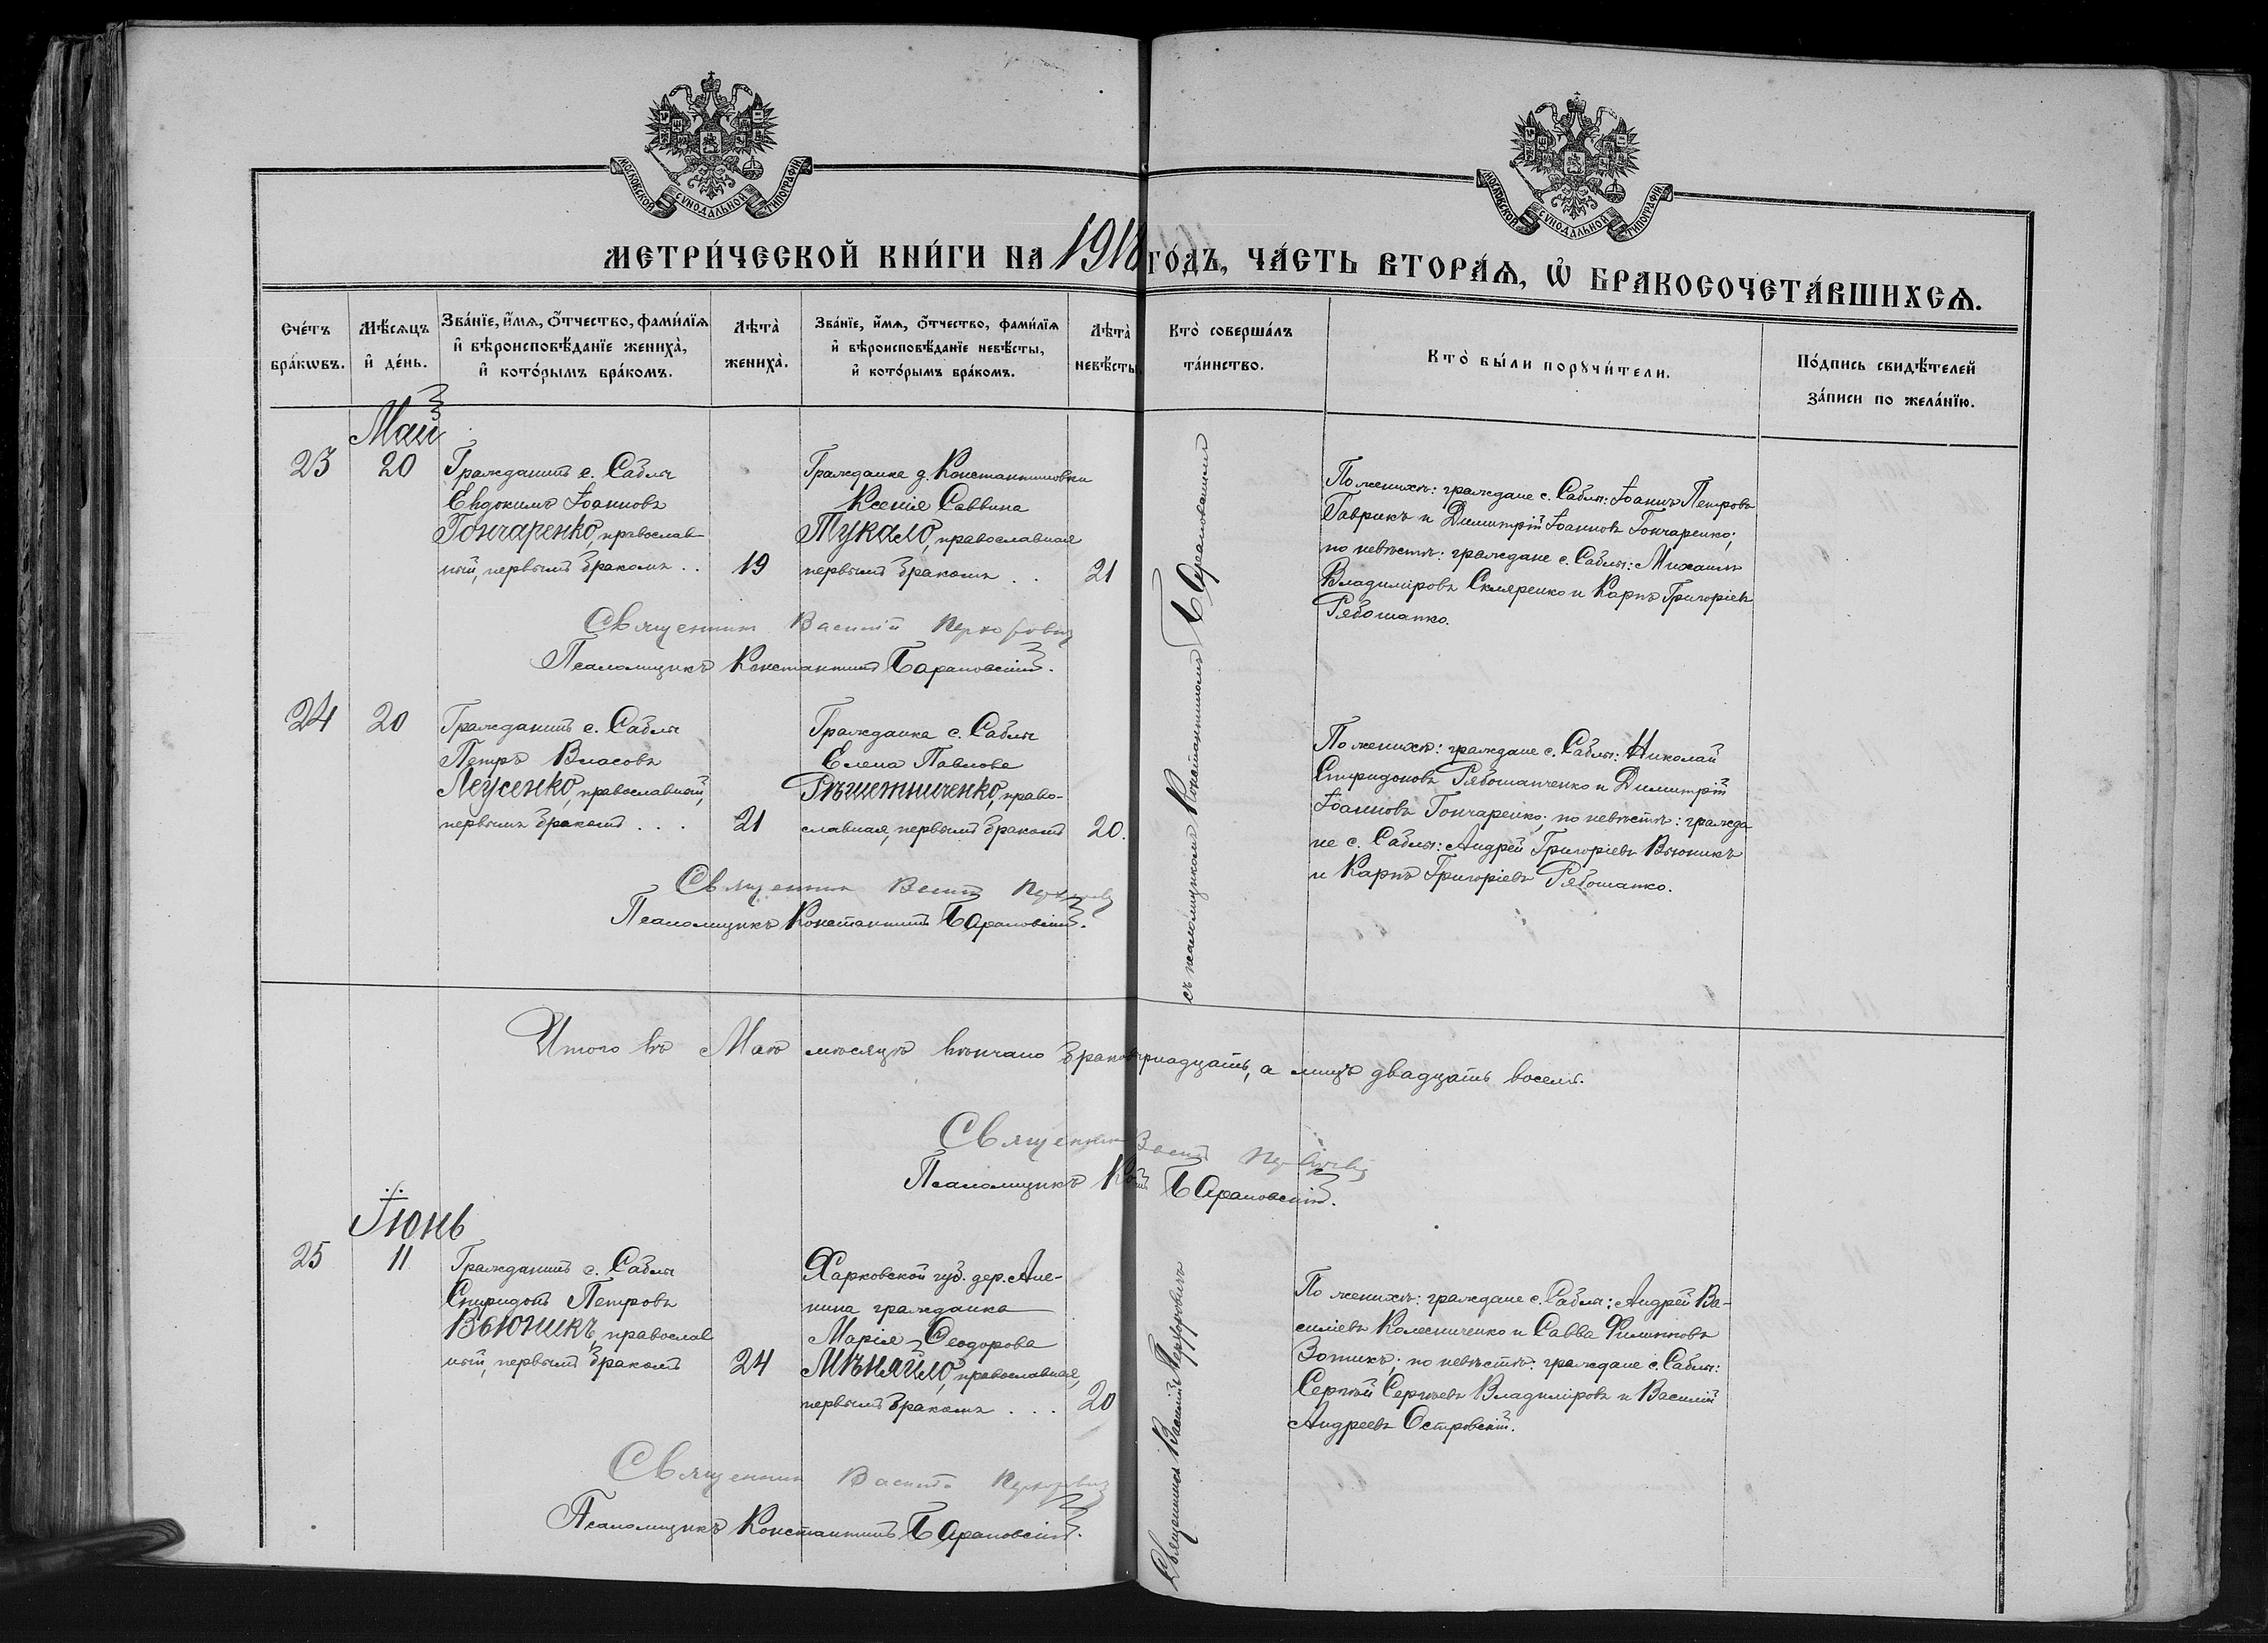 МОСКОВСКОЙ СѴНОДАЛЬНОЙ ТИПОГРАФІИ
МОСКОВСКОЙ СѴНОДАЛЬНОЙ ТИПОГРАФІИ
МЕТРИ́ЧЕСКОЙ КНИ́ГИ НА 1918 ГО́ДЪ, ЧА́СТЬ ВТОРА́Я, Ѡ БРАКОСОЧЕТА́ВШИХСЯ.
Сче́тъ бра́кѡвъ.
Мѣ́сяцъ и҆ де́нь.
Зва́нїе, и҆́мя, ѻ҆́тчество, фами́лїя
и҆ вѣроисповѣ́данїе жениха̀,
и҆ кото́рымъ бра́комъ.
Лѣта̀ жениха̀.
Зва́нїе, и҆́мя, ѻ҆́тчество, фами́лїя
и҆ вѣроисповѣ́данїе невѣ́сты,
и҆ кото́рымъ бра́комъ.
Лѣта̀ невѣ́сты
Кто̀ соверша́лъ
та́инство.
Кто̀ бы́ли порꙋчи́тели.
По́дпись свидѣ́телей
за́писи по жела́нїю.
Май
23
20
Гражданинъ с. Саблы
Евдокимъ Іоанновъ
Гончаренко, православ-
ный, первымъ бракомъ . .
19
Гражданка д. Константиновки
Ксенія Саввина
Тукало, православная
первымъ бракомъ . .
21
По женихѣ: граждане с. Саблы: Іоаннъ Петровъ
Гаврикъ и Димитрій Іоанновъ Гончаренко;
по невѣстѣ: граждане с. Саблы: Михаилъ
Владиміровъ Скляренко и Карпъ Григоріевъ
Рябошапко.
Священник Василій
Псаломщикъ Константинъ Барановскій.
24
20
Гражданинъ с. Саблы
Петръ Власовъ
Леусенко, православный,
первымъ бракомъ . . .
21
Гражданка с. Саблы
Елена Павлова
Рѣшетниченко, право-
славная, первымъ бракомъ
20.
По женихѣ: граждане с. Саблы: Николай
Спиридоновъ Рябошапченко и Димитрій
Іоанновъ Гончаренко; по невѣстѣ: гражда
не с. Саблы: Андрей Григоріевъ Вьюникъ
и Карпъ Григоріевъ Рябошапко.
Священник
Псаломщикъ Константинъ Барановскій.
съ псаломщикомъ Константиномъ Барановскимъ
Итого въ Маѣ мѣсяцѣ вѣнчано а лицъ двадцать восемь.
Священник
Псаломщикъ Барановскій.
Іюнь
25
11
Гражданинъ с. Саблы
Спиридонъ Петровъ
Вьюникъ, православ
ный, первымъ бракомъ
24
Харковской губ. дер.
гражданка
Марія Ѳеодорова
Мѣняйло, православная,
первымъ бракомъ . . .
20
По женихѣ: граждане с. Саблы: Андрей Ва-
силіевъ Колесниченко и Савва Филипповъ
Зотикъ; по невѣстѣ: граждане с. Саблы:
Сергѣй Сергѣевъ Владиміровъ и Василій
Андреевъ Островскій.
Священник
Псаломщикъ Константинъ Барановскій.
Священникъ Василій